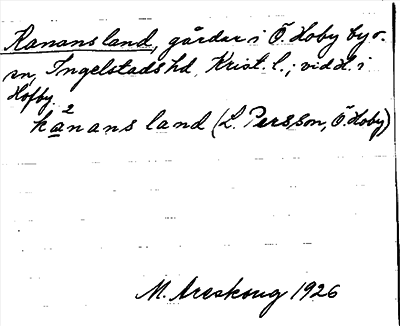 Kanansland, gårdar i Ö. Hoby by o.
sn, Ingelstads hd, Krist. l.; vidd. i
Hofby.
ka²nans land (L. Persson, Ö. Hoby)
M. Areskoug 1926